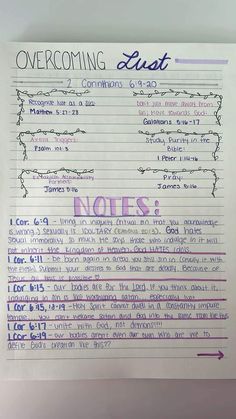 OVERCOMING Lust
Corinthians 6:9-20
Recognize lust as a sin
Matthew 5:27-28
Don't just move away from
sin, move towards God!
Galatians 5:16-17
Avoid Triggers
Psalm 101:3
Study Purity in the
Bible:
1 Peter 1:14-16
Accountability
Partner!
James 5:16
Pray:
James 5:16
NOTES:
1 Cor. 6:9 - living in iniquity (sin that you acknowledge
is wrong.) Sexuality is IDOLATRY God hates
sexual immorality so much He says those who indulge in it will
not inherit the Kingdom of Heaven. God HATES
1 Cor. 6:11 - be born again in areas you still sin in (crucify it with
the flesh) Submit your desires to God that are deadly. Because of
Jesus, all this is possible!
1 Cor. 6:13 - our bodies are for the Lord. If you think about it,
indulging in sin is like worshiping satan... especially lust
1 Cor 6:15, 18-19 - Holy Spirit cannot dwell in a constantly impure
temple... You can't welcome satan and God into the same
1 Cor 6:17 - unite with God, not demons!!!!
1 Cor 6:19 - our bodies aren't even our own who are we to
defile God's creation like this??